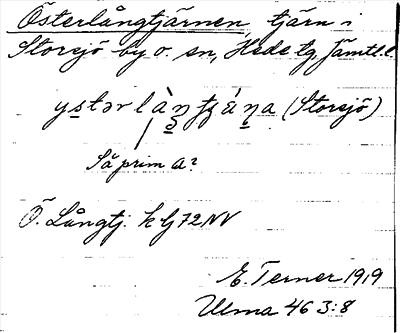 Österlångtjärnen, tjärn i
Storsjö by o. sn, Hede tg, Jämtl. l.
ystərlàŋtjä́ṇa (Storsjö)
Så prim a?
Ö. Långtj. k bj 72 NV
E. Terner 1919
Ulma 46 3:8